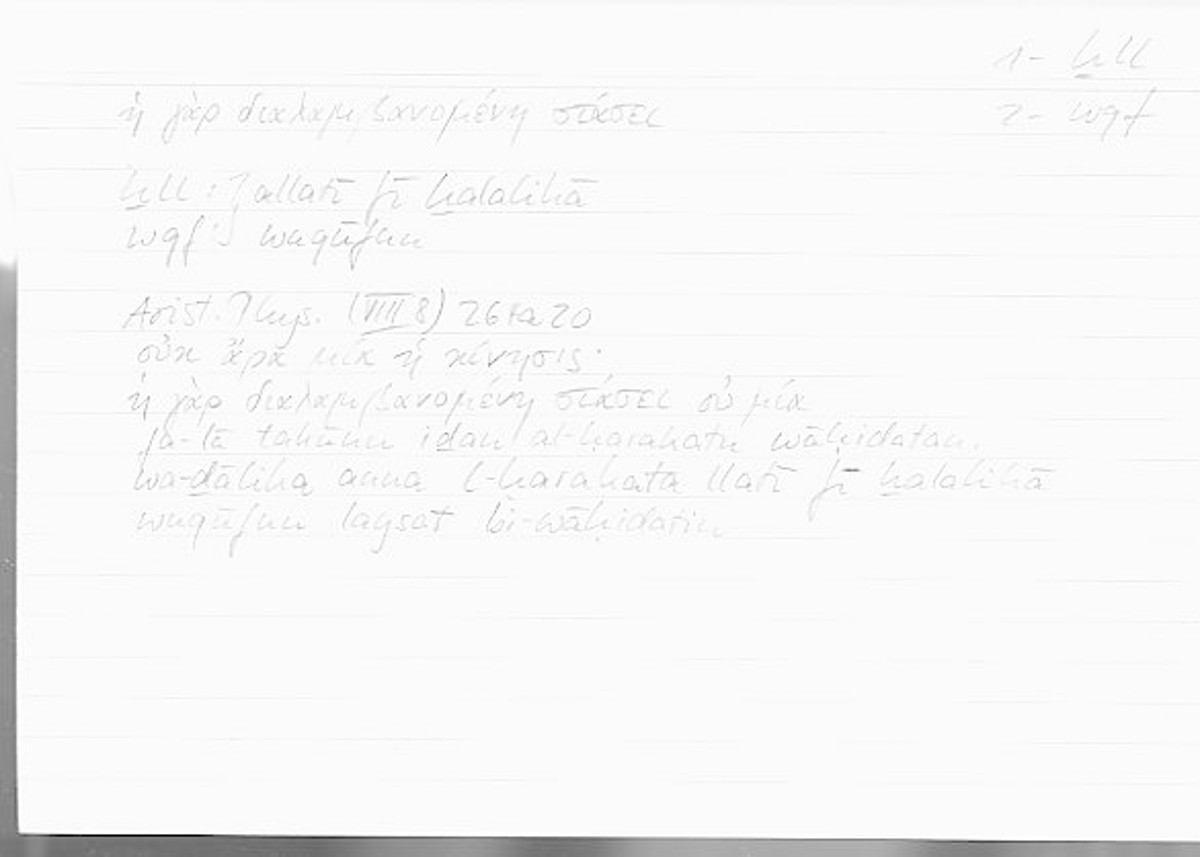 1- ḫll
ἡ γὰρ διαλαμβανομένη στάσει
2- wqf
ḫll: allatī fī ḫalalihā
wqf: wuqūfun
Arist. Phys. (VIII 8) 264a20
οὐκ ἄρα μία ἡ κίνησις·
ἡ γὰρ διαλαμβανομένη στάσει οὐ μία
fa-lā takūnu iḏan al-ḥarakatu wāḥidatan.
wa-ḏālika anna l-ḥarakata llatī fī ḫalalihā
wuqūfun laysat bi-wāḥidatin